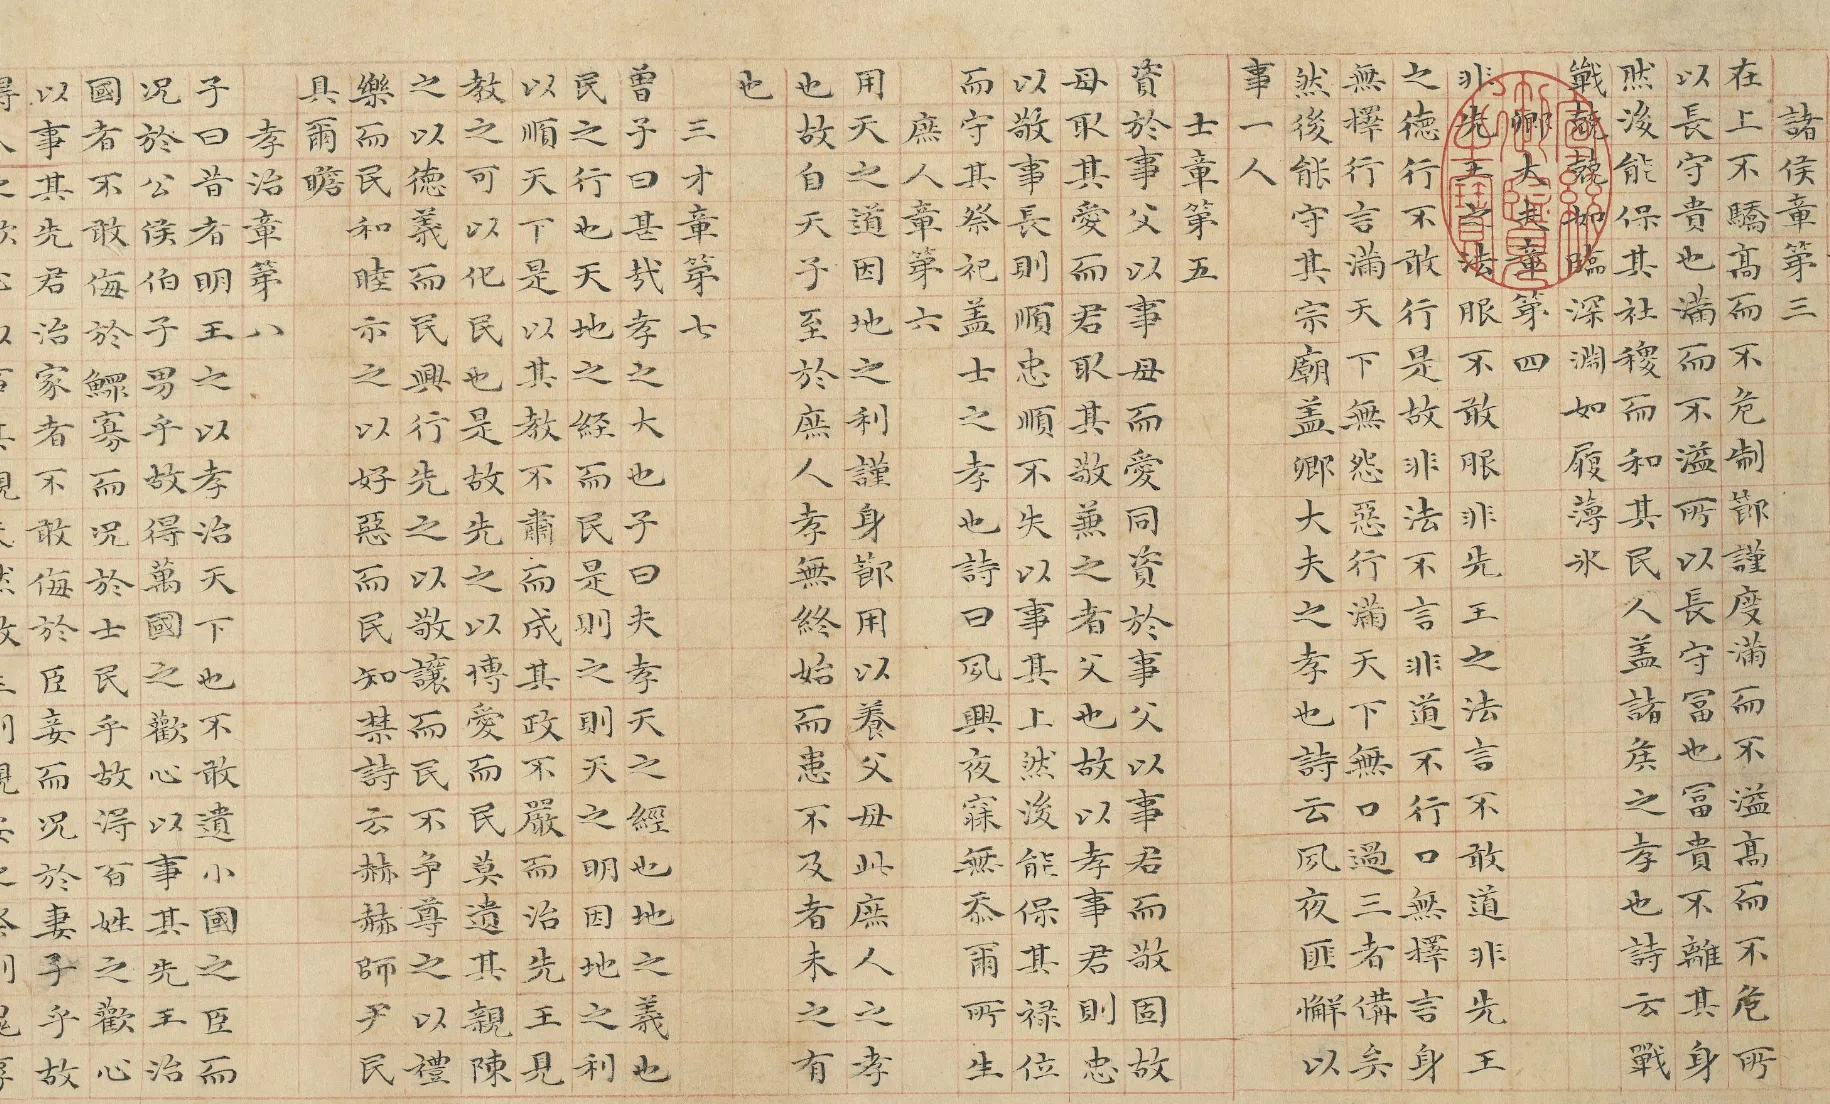 諸侯章第三
在上不驕高而不危制節謹度滿而不溢高而不危所
以長守貴也滿而不溢所以長守冨也冨貴不離其身
然後能保其社稷而和其民人盖諸侯之孝也詩云戰
戰兢兢如臨深淵如履薄氷
卿大夫章第四
非先王之法服不敢服非先王之法言不敢道非先王
之徳行不敢行是故非法不言非道不行口無擇言身
無擇行言滿天下無怨惡行滿天下無口過三者備矣
然後能守其宗廟盖卿大夫之孝也詩云夙夜匪懈以
事一人
士章第五
資於事父以事母而愛同資於事父以事君而敬固故
母取其愛而君取其敬兼之者父也故以孝事君則忠
以敬事長則順忠順不失以事其上然後能保其禄位
而守其祭祀盖士之孝也詩曰夙興夜寐無忝爾所生
庶人章第六
用天之道因地之利謹身節用以養父母此庶人之孝
也故自天子至於庶人孝無終始而患不及者未之有
也
三才章第七
曾子曰甚哉孝之大也子曰夫孝天之經也地之義也
民之行也天地之経而民是則之則天之明因地之利
以順天下是以其教不肅而成其政不嚴而治先王見
教之可以化民也是故先之以博愛而民莫遺其親陳
之以徳義而民興行先之以敬讓而民不争尊之以禮
樂而民和睦示之以好惡而民知禁詩云赫赫師尹民
具爾瞻
孝治章第八
子曰昔者明王之以孝治天下也不敢遺小國之臣而
况於公侯伯子男乎故得萬國之歡心以事其先王治
國者不敢侮於鰥寡而况於士民乎故得百姓之歡心
以事其先君治家者不敢侮於臣妾而况於妻子乎故